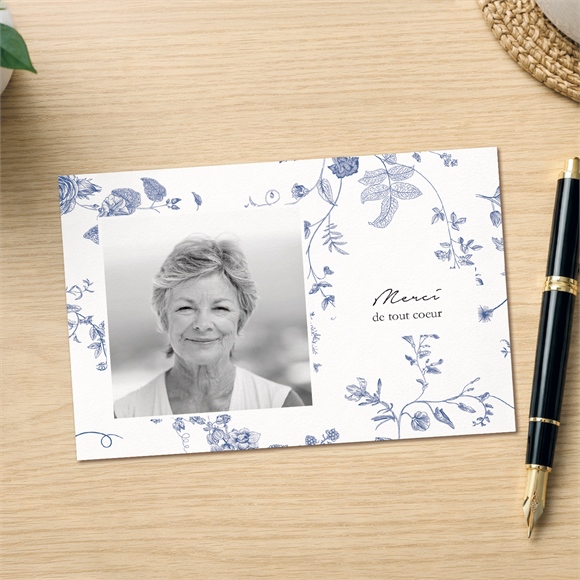 Merci
de tout coeur